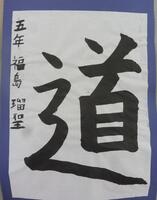 道
五年 福島 瑠聖